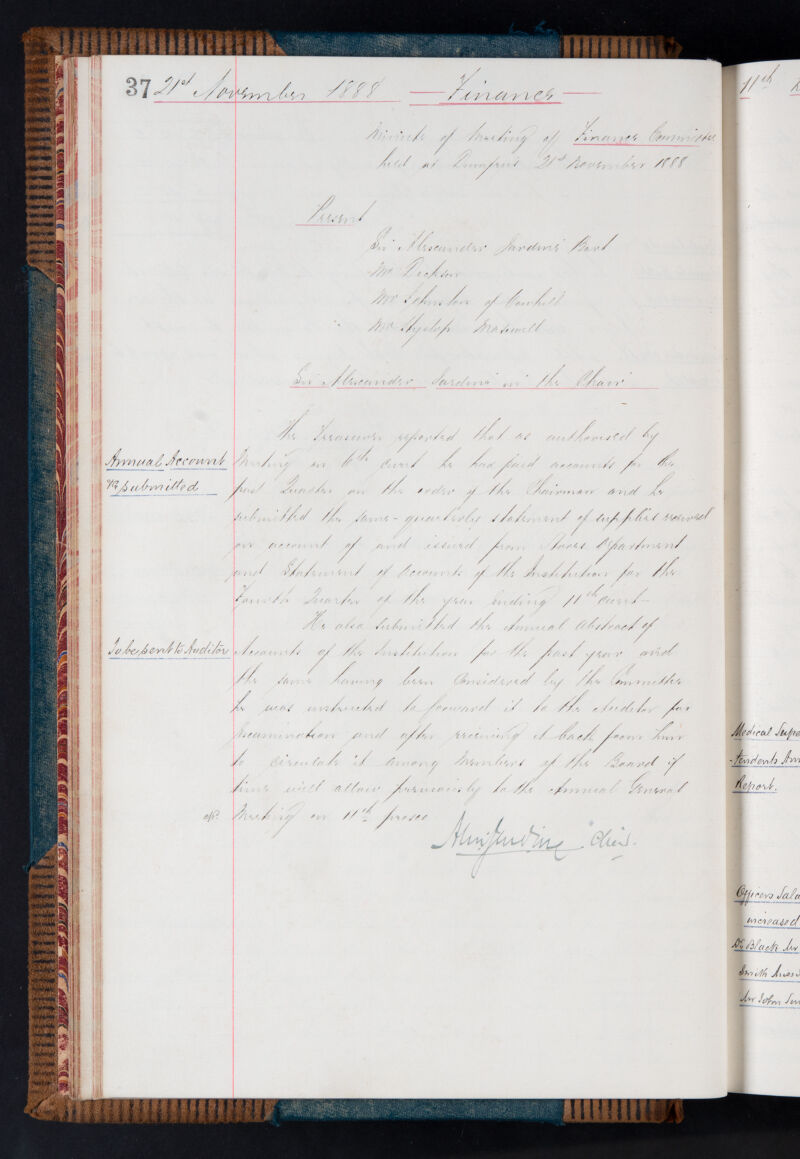 37 21st November 1888 Finance
Minute of Meeting of Finance Committee
held at Dumfries 21st November 1888
Present
Sir Alexander Jardine Bart
Mr Dickson
Mr Johnston of Cowhill
Mr Hyslop Maxwell
Sir Alexander Jardine in the Chair
The Treasurer reported that as authorised by
Annual Account
Meeting on 6th curt he had paid accounts for the
submitted
past Quarter on the order of the Chairman and he
submitted the same - quarterly statement of supplies received
on account of and issued from Stores Department
and Statement of Accounts of the Institution for the
Fourth Quarter of the year ending 11th curt -
He also submitted the Annual Abstract of
To be sent to Auditor
Accounts of the Institution for the past year and
the same having been considered by the Committee
he was instructed to forward it to the Auditor for
Examination and after receiving it back from him
to circulate it among Members of the Board if
time will allow previously to the Annual General
Meeting on 11th proxo
Alex Jardine Chn.
11th
Medical Supe
-tendents Ann
Report.
Officers Sala
increased
Dr Black Mr
Smith
Mr John